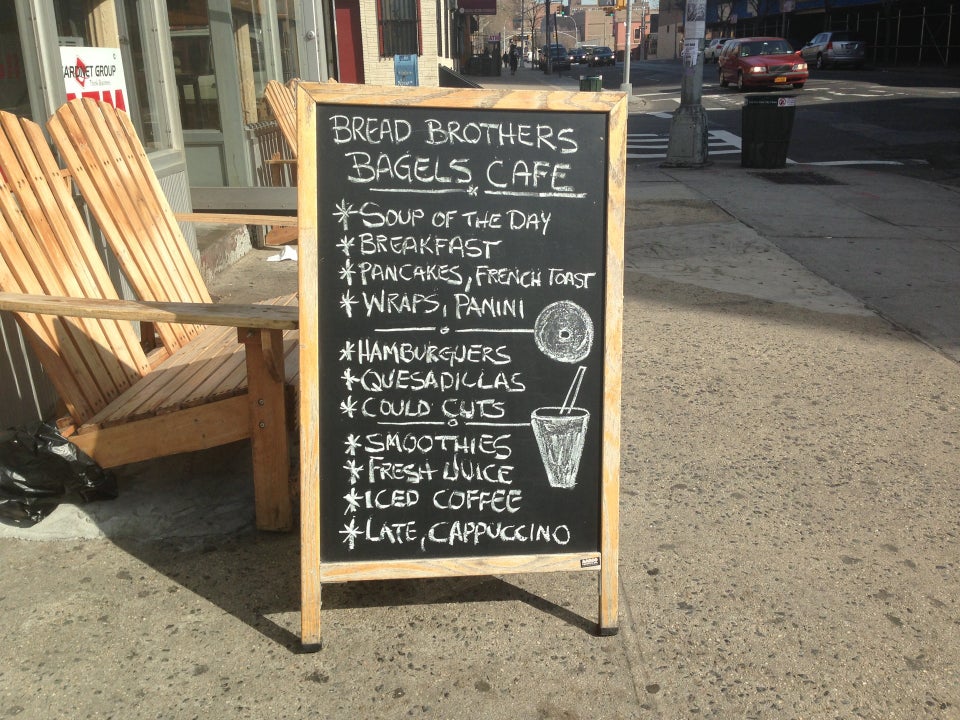 BREAD BROTHERS
BAGELS CAFE
*SOUP OF THE DAY
*BREAKFAST
*PANCAKES, FRENCH TOAST
*WRAPS, PANINI
*HAMBURGUERS
*QUESADILLAS
*COULD CUTS
*SMOOTHIES
*FRESH JUICE
*ICED COFFEE
*LATE, CAPPUCCINO
GROUP